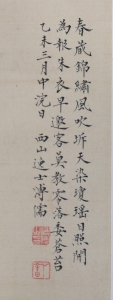 春蕆錦繡風吹坼天染瓊瑤日照開
為報朱衣早邀客莫教零落委蒼苔
乙未三月中浣日
西山逸士溥儒